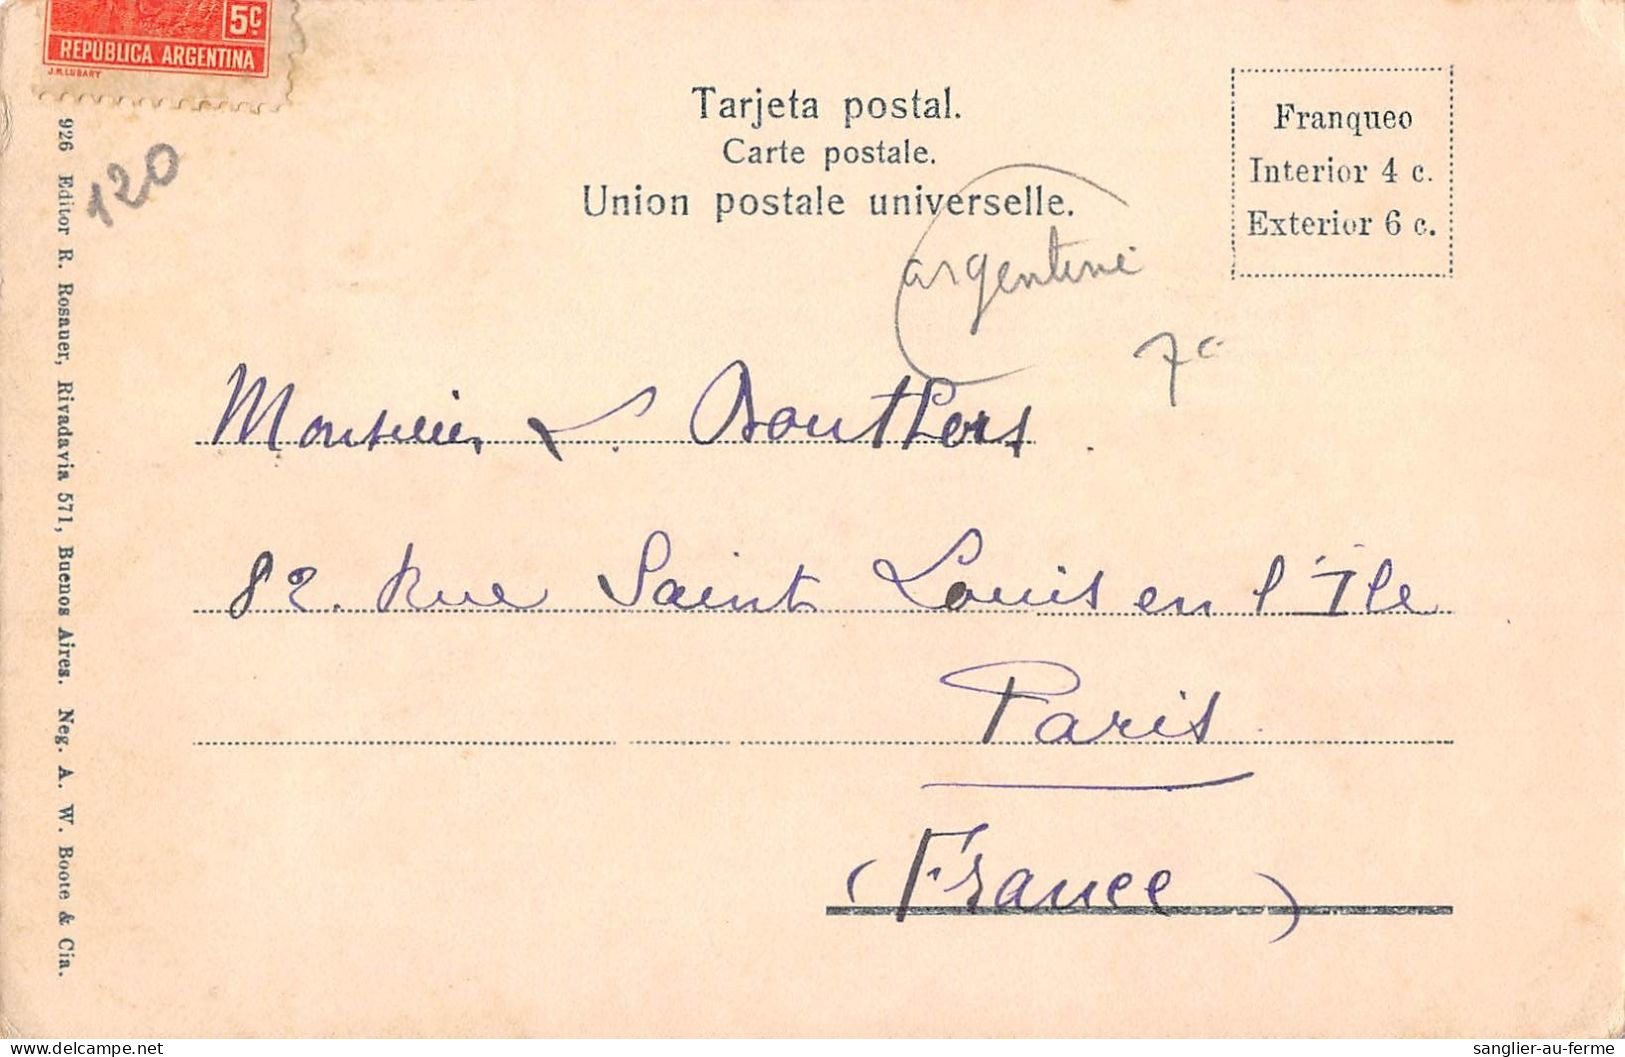 5C
REPÚBLICA ARGENTINA
J.M.LUBARY
120
Tarjeta postal.
Carte postale.
Union postale universelle.
Franqueo
Interior 4 c.
Exterior 6 c.
argentine
7€
Monsieur L. Bouthors
82. Rue Saint Louis en l'Ile
Paris
(France)
926 Editor R. Rosauer, Rivadavia 571, Buenos Aires. Neg. A. W. Boote & Cia.
sanglier-au-ferme